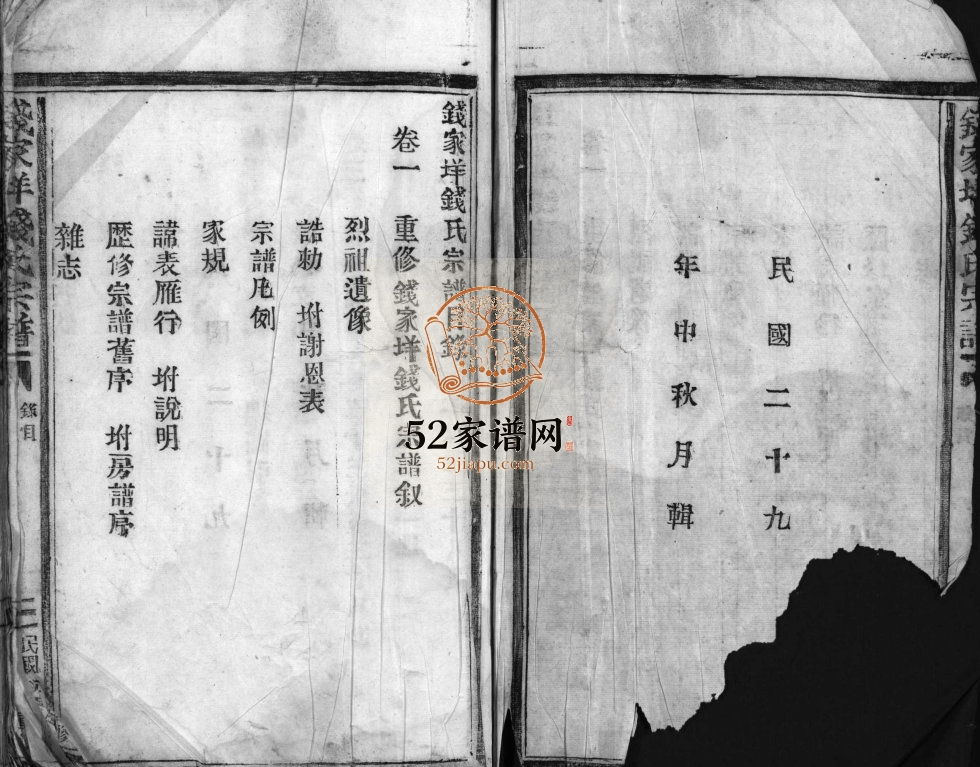 錢家垟錢氏宗譜
民國二十九
年中秋月輯
錢家垟錢氏宗譜目錄
卷一 重修錢家垟錢氏宗譜叙
烈祖遺像
誥勅 坿謝恩表
宗譜凡例
家規
諱表雁行 坿說明
歷修宗譜舊序 坿房譜序
雜志
錢家垟錢氏宗譜
目錄
民國
52家谱网
52jiapu.com